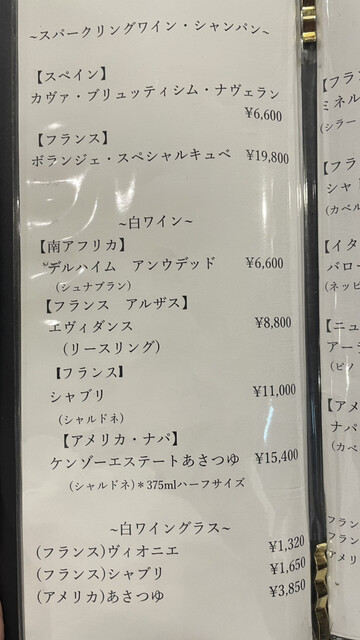 ~スパークリングワイン・シャンパン~
【スペイン】
カヴァ・ブリュッティシム・ナヴェラン
¥6,600
【フランス】
ボランジェ・スペシャルキュベ ¥19,800
~白ワイン~
【南アフリカ】
デルハイム アンウデッド ¥6,600
(シュナブラン)
【フランス アルザス】
エヴィダンス ¥8,800
(リースリング)
【フランス】
シャブリ ¥11,000
(シャルドネ)
【アメリカ・ナパ】
ケンゾーエステートあさつゆ ¥15,400
(シャルドネ)*375mlハーフサイズ
~白ワイングラス~
(フランス)ヴィオニエ ¥1,320
(フランス)シャブリ ¥1,650
(アメリカ)あさつゆ ¥3,850
【フラ
ミネル
(シラー
【フラ
シャ
(カベル
【イタ
バロー
(ネッビ
【ニュ
アー
(ピノ
【アメ
ナパ
(カベ
フラン
フラン
アメリ